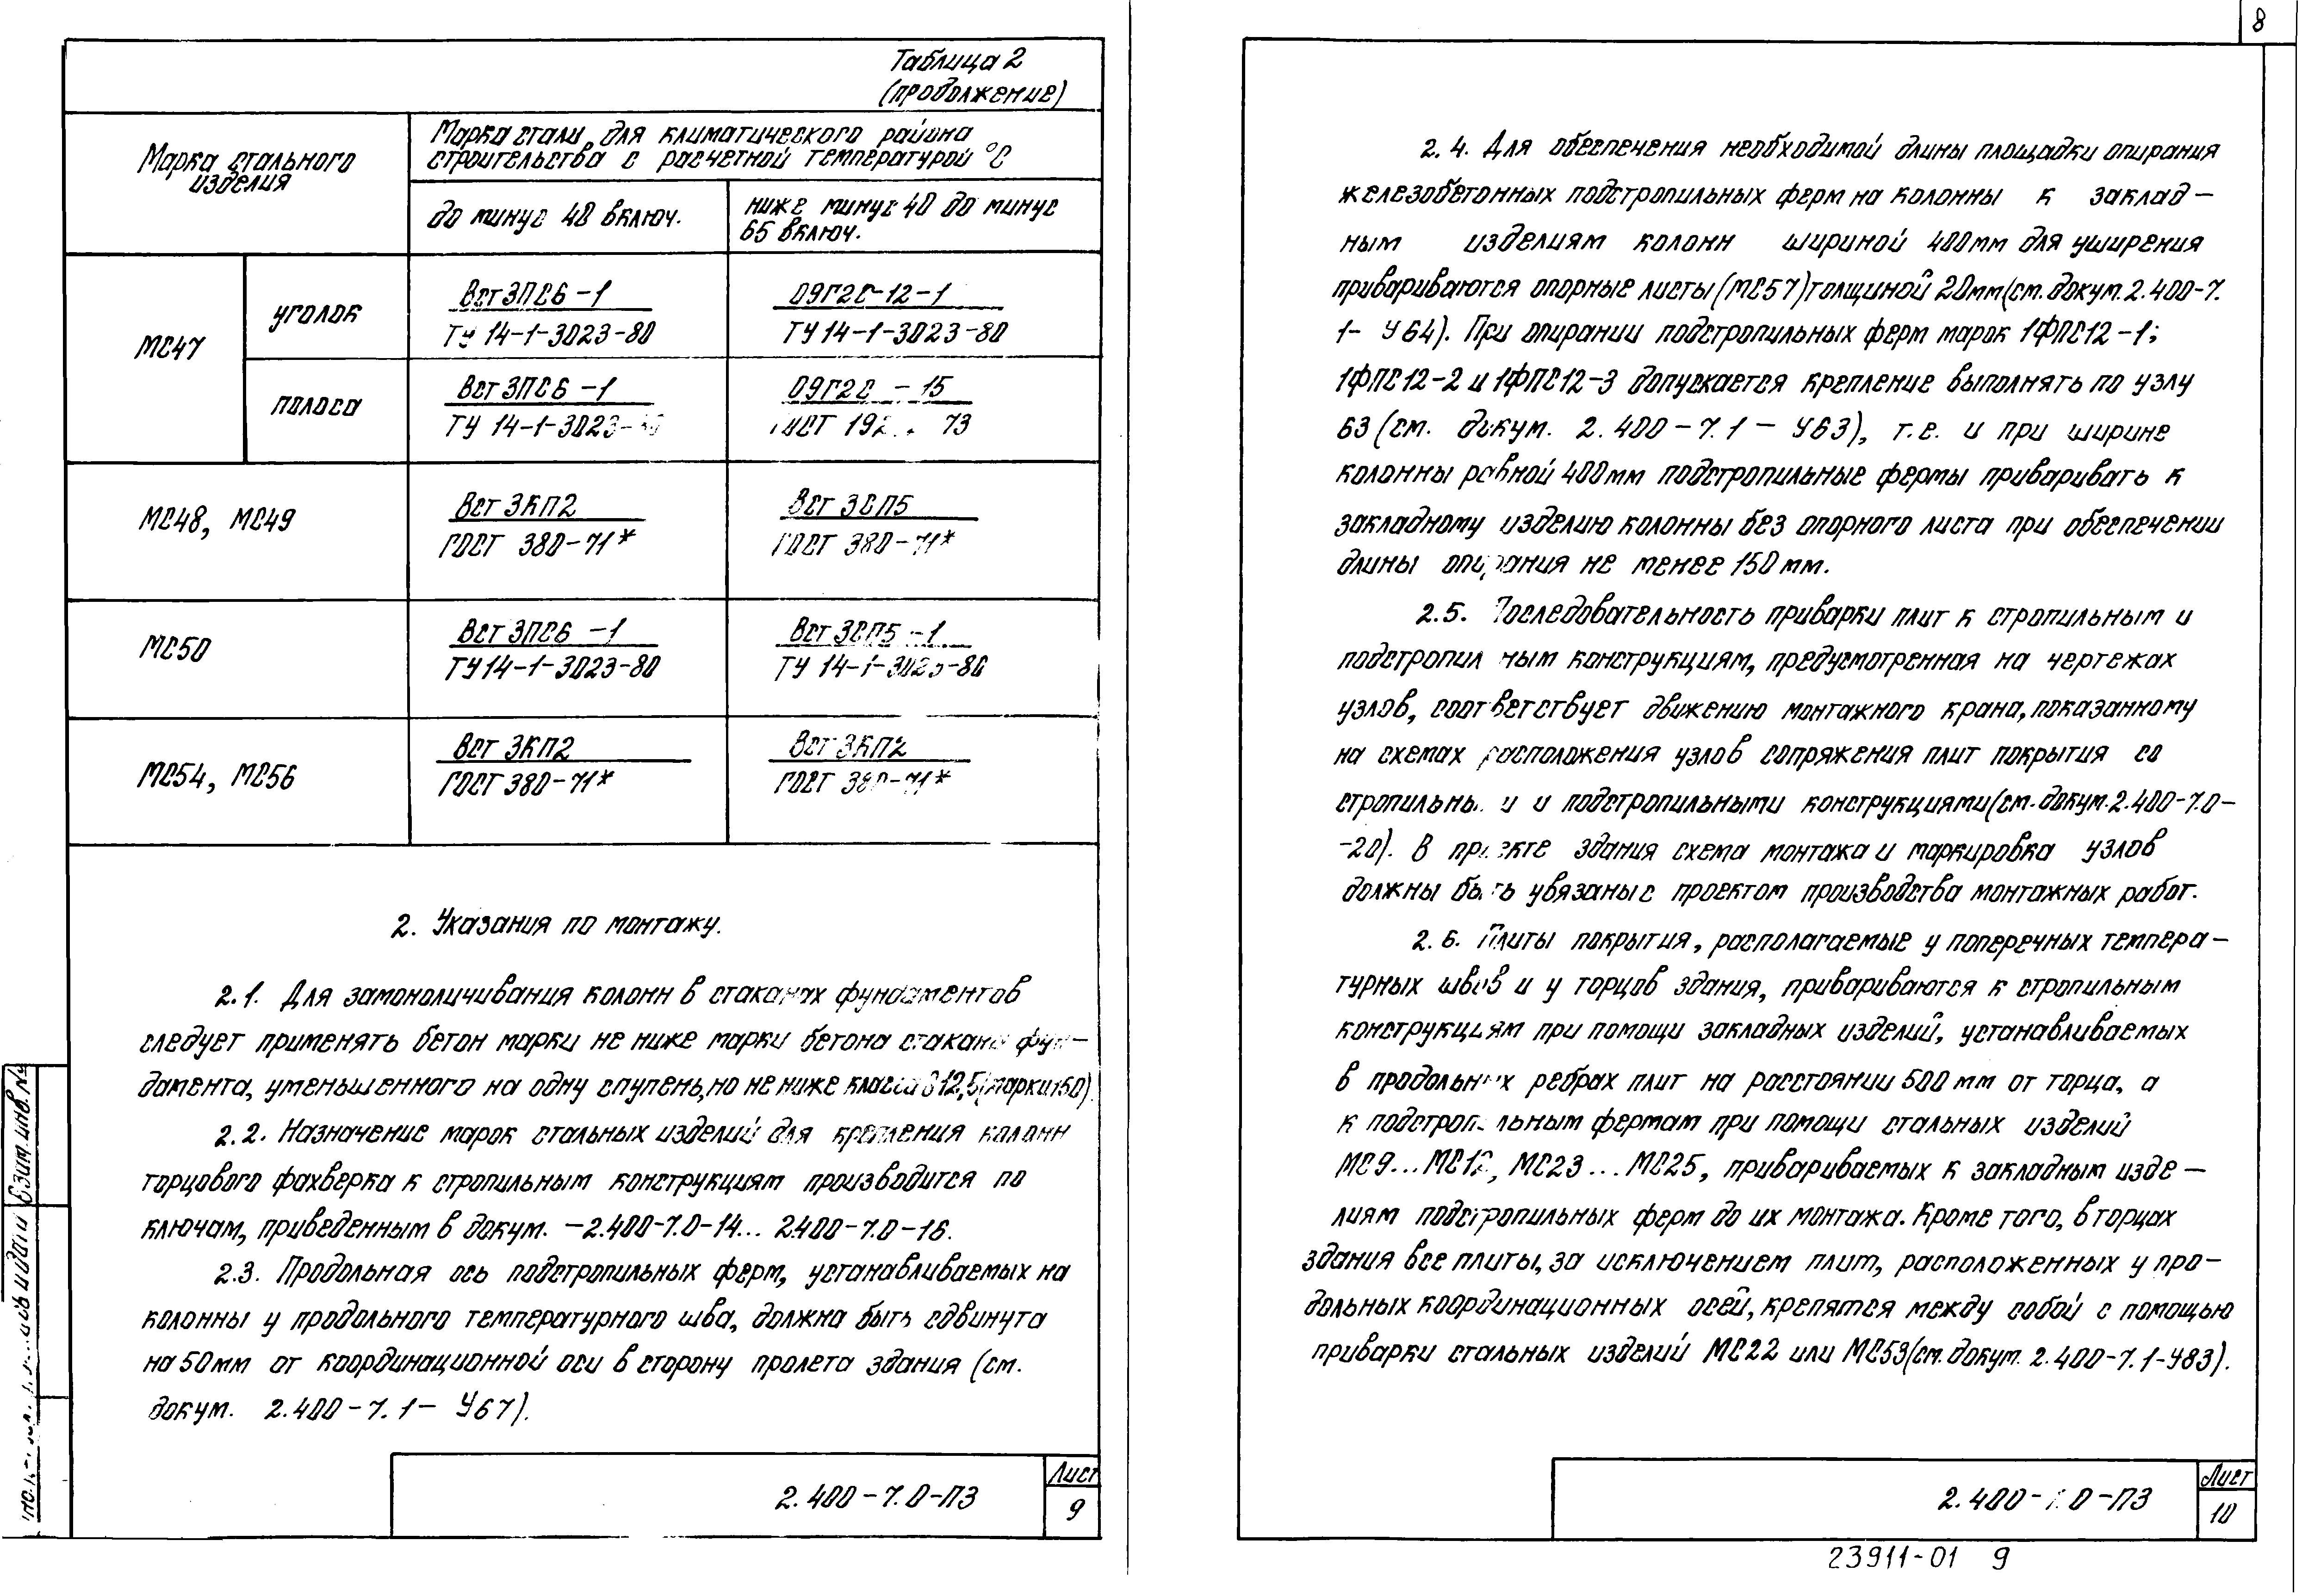 Таблица 2
(продолжение)
Марка стального
изделия
Марка стали для климатического района
строительства с расчетной температурой °С
до минус 40 включ.
ниже минус 40 до минус
65 включ.
МС47
уголок
Вст3пс6-1
ТУ 14-1-3023-80
09Г2С-12-1
ТУ 14-1-3023-80
полоса
Вст3пс6-1
ТУ 14-1-3023-
09Г2С-15
73
МС48, МС49
Вст 3кп2
ГОСТ 380-71*
Вст 3сп5
ГОСТ 380-71*
МС50
Вст3пс6-1
ТУ14-1-3023-80
Вст 3сп5-1
ТУ 14-1-3023-80
МС54, МС56
Вст 3кп2
ГОСТ 380-71*
Вст 3кп2
ГОСТ 380-71*
2. Указания по монтажу.
2.1. Для замоноличивания колонн в стаканах фундаментов
следует применять бетон марки не ниже марки бетона стакана фун-
дамента, уменьшенного на одну ступень, но не ниже класса В12,5(марки150).
2.2. Назначение марок стальных изделий для крепления колонн
торцового фахверка к стропильным конструкциям производится по
ключам, приведенным в докум. -2.400-7.0-14... 2.400-7.0-16.
2.3. Продольная ось подстропильных ферм, устанавливаемых на
колонны у продольного температурного шва, должна быть сдвинута
на 50мм от координационной оси в сторону пролета здания (см.
докум. 2.400-7.1- У67).
Взим.инв.№
2.400-7.0-ПЗ
Лист
9
8
2.4. Для обеспечения необходимой длины площадки опирания
железобетонных подстропильных ферм на колонны к заклад-
ным изделиям колонн шириной 400мм для уширения
привариваются опорные листы (МС57) толщиной 20мм(см.докум.2.400-7.
1- У64). При опирании подстропильных ферм марок 1ФПС12-1;
1ФПС12-2 и 1ФПС12-3 допускается крепление выполнять по узлу
63 (см. докум. 2.400-7.1- У63), т.е. и при ширине
колонны равной 400мм подстропильные фермы приваривать к
закладному изделию колонны без опорного листа при обеспечении
длины опирания не менее 150мм.
2.5. Последовательность приварки плит к стропильным и
подстропильным конструкциям, предусмотренная на чертежах
узлов, соответствует движению монтажного крана, показанному
на схемах расположения узлов сопряжения плит покрытия со
стропильными и подстропильными конструкциями(см.докум.2.400-7.0-
-20). В проекте здания схема монтажа и маркировка узлов
должны быть увязаны с проектом производства монтажных работ.
2.6. Плиты покрытия, располагаемые у поперечных темпера-
турных швов и у торцов здания, привариваются к стропильным
конструкциям при помощи закладных изделий, устанавливаемых
в продольных ребрах плит на расстоянии 500мм от торца, а
к подстропильным фермам при помощи стальных изделий
МС9...МС12, МС23...МС25, привариваемых к закладным изде-
лиям подстропильных ферм до их монтажа. Кроме того, в торцах
здания все плиты, за исключением плит, расположенных у про-
дольных координационных осей, крепятся между собой с помощью
приварки стальных изделий МС22 или МС53(см.докум. 2.400-7.1-У83).
2.400-7.0-ПЗ
Лист
10
23911-01 9